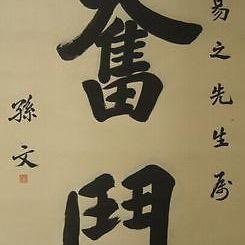 易之先生属
奮鬥
孫文